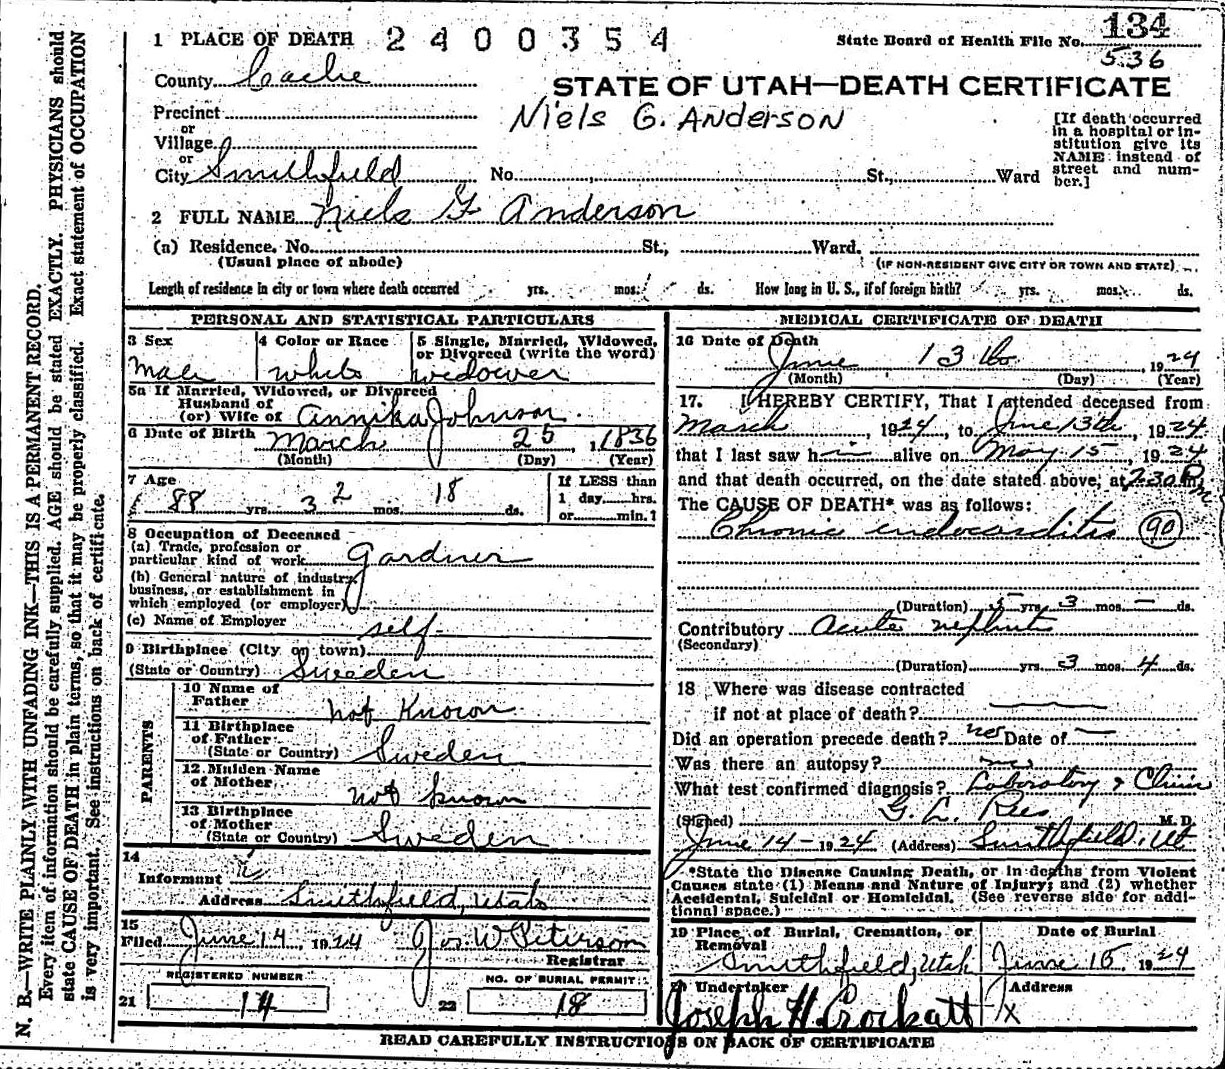 1 PLACE OF DEATH 2400354 State Board of Health File No. 134
536
County Cache
STATE OF UTAH—DEATH CERTIFICATE
Precinct
Niels G. Anderson
or
Village
or
City Smithfield No. , St., Ward
[If death occurred
in a hospital or in-
stitution give its
NAME instead of
street and num-
ber.]
2 FULL NAME Niels G Anderson
(a) Residence. No. St., Ward.
(Usual place of abode) (IF NON-RESIDENT GIVE CITY OR TOWN AND STATE)
Length of residence in city or town where death occurred yrs. mos. ds. How long in U. S., if of foreign birth? yrs. mos. ds.
PERSONAL AND STATISTICAL PARTICULARS
3 Sex 4 Color or Race 5 Single, Married, Widowed,
or Divorced (write the word)
Male white widower
5a If Married, Widowed, or Divorced
Husband of
(or) Wife of Annika Johnson.
6 Date of Birth March 25, 1836
(Month) (Day) (Year)
7 Age If LESS than
88 yrs. 3 2 mos. 18 ds. 1 day, hrs.
or min.?
8 Occupation of Deceased
(a) Trade, profession or
particular kind of work Gardner
(b) General nature of industry,
business, or establishment in
which employed (or employer)
(c) Name of Employer self
9 Birthplace (City or town)
(State or Country) Sweden
PARENTS
10 Name of
Father not Known
11 Birthplace
of Father
(State or Country) Sweden
12 Maiden Name
of Mother not known
13 Birthplace
of Mother
(State or Country) Sweden
14
Informant
Address Smithfield, Utah
15
Filed June 14, 1924 Jos W Peterson
Registrar
REGISTERED NUMBER NO. OF BURIAL PERMIT
21 14 22 18
MEDICAL CERTIFICATE OF DEATH
16 Date of Death
June 13th, 1924
(Month) (Day) (Year)
17. I HEREBY CERTIFY, That I attended deceased from
March, 1924, to June 13th, 1924
that I last saw him alive on May 15, 1924
and that death occurred, on the date stated above, at 7:30 Pm
The CAUSE OF DEATH* was as follows:
Chronic endocarditis 90
(Duration) 5 yrs. 3 mos. — ds.
Contributory Acute nephritis
(Secondary)
(Duration) yrs. 3 mos. 4 ds.
18 Where was disease contracted
if not at place of death? —
Did an operation precede death? no Date of —
Was there an autopsy? no
What test confirmed diagnosis? Laboratory & Clinic
(Signed) G. L. Rees M. D.
June 14 - 1924 (Address) Smithfield. Ut
*State the Disease Causing Death, or in deaths from Violent
Causes state (1) Means and Nature of Injury; and (2) whether
Accidental, Suicidal or Homicidal. (See reverse side for addi-
tional space.)
19 Place of Burial, Cremation, or Date of Burial
Removal
Smithfield, Utah June 15 1924
20 Undertaker Address
Joseph H. Crockatt X
READ CAREFULLY INSTRUCTIONS ON BACK OF CERTIFICATE
N. B.—WRITE PLAINLY WITH UNFADING INK—THIS IS A PERMANENT RECORD.
Every item of information should be carefully supplied. AGE should be stated EXACTLY. PHYSICIANS should
state CAUSE OF DEATH in plain terms, so that it may be properly classified. Exact statement of OCCUPATION
is very important. See instructions on back of certificate.